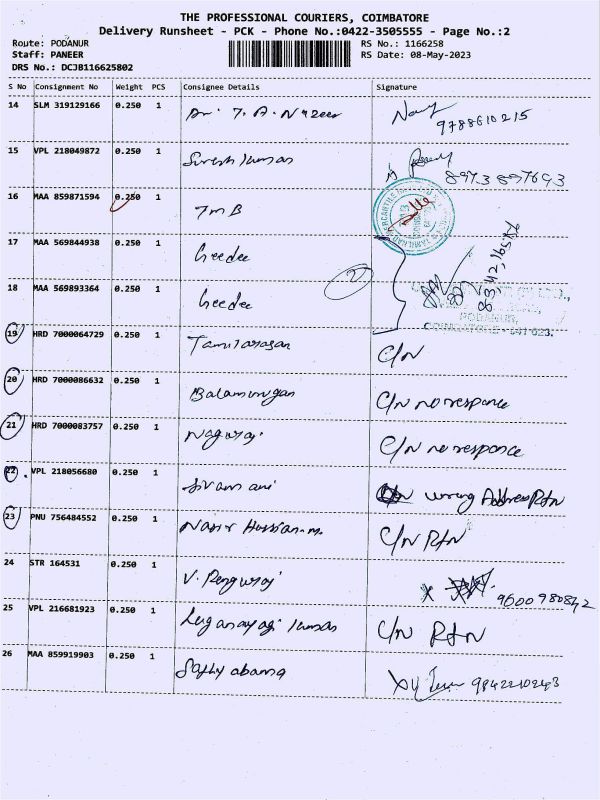 THE PROFESSIONAL COURIERS, COIMBATORE
Delivery Runsheet - PCK - Phone No.:0422-3505555 - Page No.:2
Route: PODANUR RS No.: 1166258
Staff: PANEER RS Date: 08-May-2023
DRS No.: DCJB116625802
S No Consignment No Weight PCS Consignee Details Signature
14 SLM 319129166 0.250 1 T. A. Nazeer
9788610215
15 VPL 218049872 0.250 1 Suresh Kumar
8973897693
16 MAA 859871594 0.250 1 TMB
17 MAA 569844938 0.250 1 Geedee
18 MAA 569893364 0.250 1 Geedee
PODANUR,
COIMBATORE - 641 023.
19 HRD 7000064729 0.250 1 Tamilarasan C/N
20 HRD 7000086632 0.250 1 Balamurugan C/N no response
21 HRD 7000083757 0.250 1 Nagaraj C/N no response
22 VPL 218056680 0.250 1 Sivamani wrong Address RTN
23 PNU 756484552 0.250 1 Nasir Hussian.m. C/N RTN
24 STR 164531 0.250 1 V.
9600980842
25 VPL 216681923 0.250 1 Kumar C/N RTN
26 MAA 859919903 0.250 1 Sathyabama 9842210243